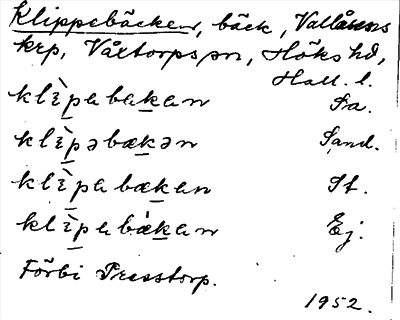 Klippebäcken, bäck, Vallåsens
krp, Våxtorps sn, Höks hd,
Hall. l.
klɛ̀pabakan Fa.
klɛ̀pəbækən Sand.
klɛ̀pabækan St.
klɛ̀pabækan Ej.
Förbi Presstorp.
1952.